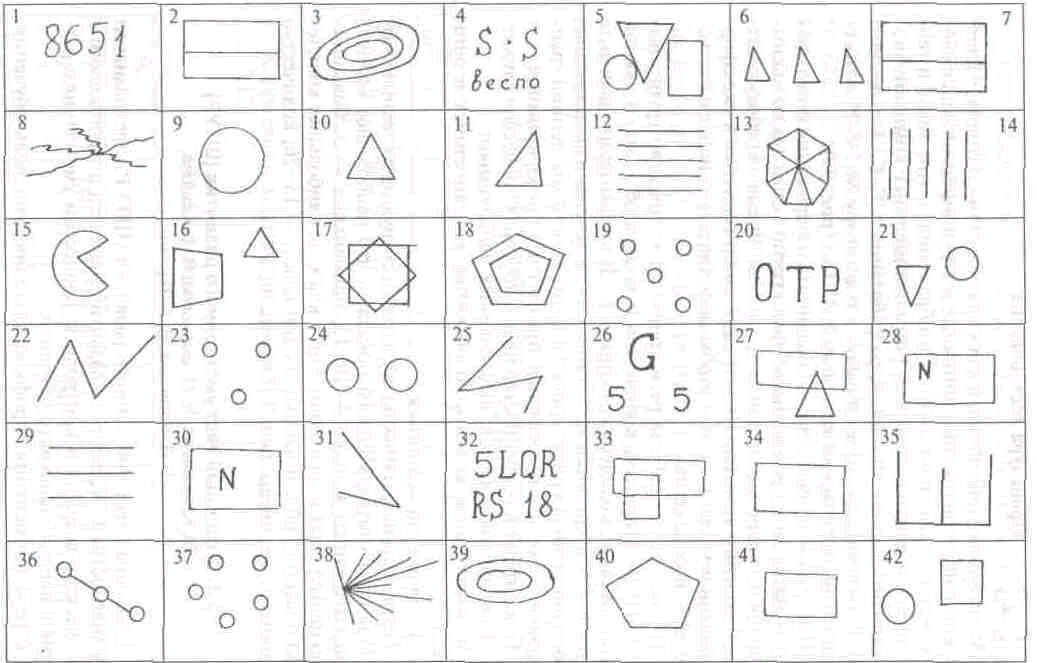 1
8651
2
3
4
S · S
весло
5
6
7
8
9
10
11
12
13
14
15
16
17
18
19
20
ОТР
21
22
23
24
25
26
G
5 5
27
28
N
29
30
N
31
32
5LQR
RS 18
33
34
35
36
37
38
39
40
41
42